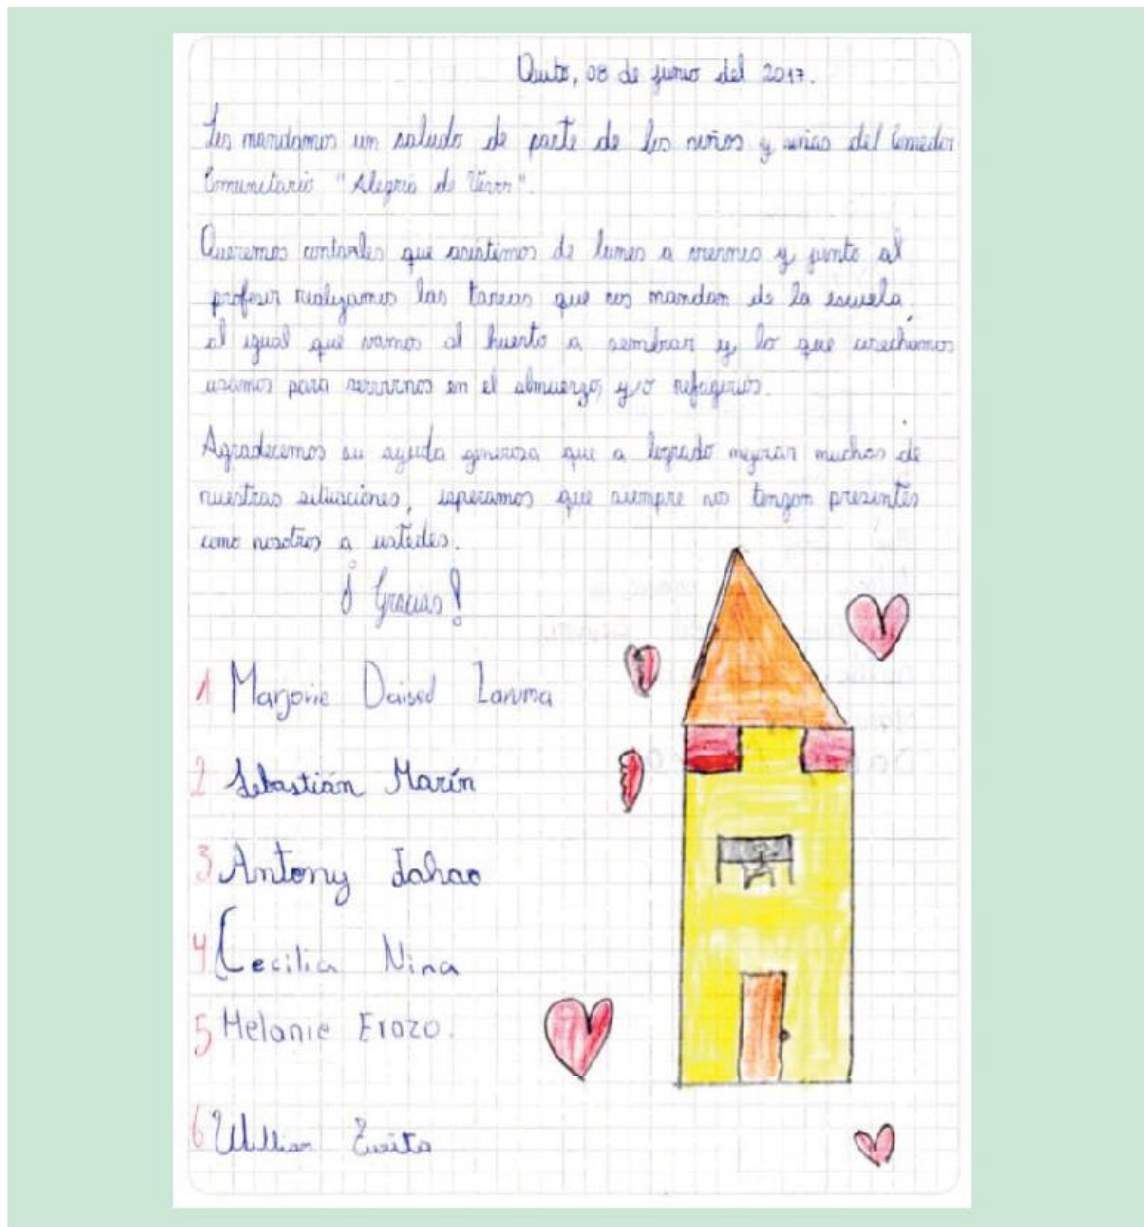 Quito, 08 de junio del 2017.
Les mandamos un saludo de parte de los niños y niñas del Comedor
Comunitario "Alegria de Vivir".
Queremos contarles que asistimos de lunes a viernes y junto al
profesor realizamos las tareas que nos mandan de la escuela,
al igual que vamos al huerto a sembrar y lo que cosechamos
usamos para servirnos en el almuerzo y/o refrigerios.
Agradecemos su ayuda generosa que a logrado mejorar muchas de
nuestras situaciónes, esperamos que siempre nos tengan presentes
como nosotros a ustedes.
¡Gracias!
1 Marjorie
2 Sebastián Marín
3 Antony
4 Cecilia Nina
5 Melanie Erozo.
6 William